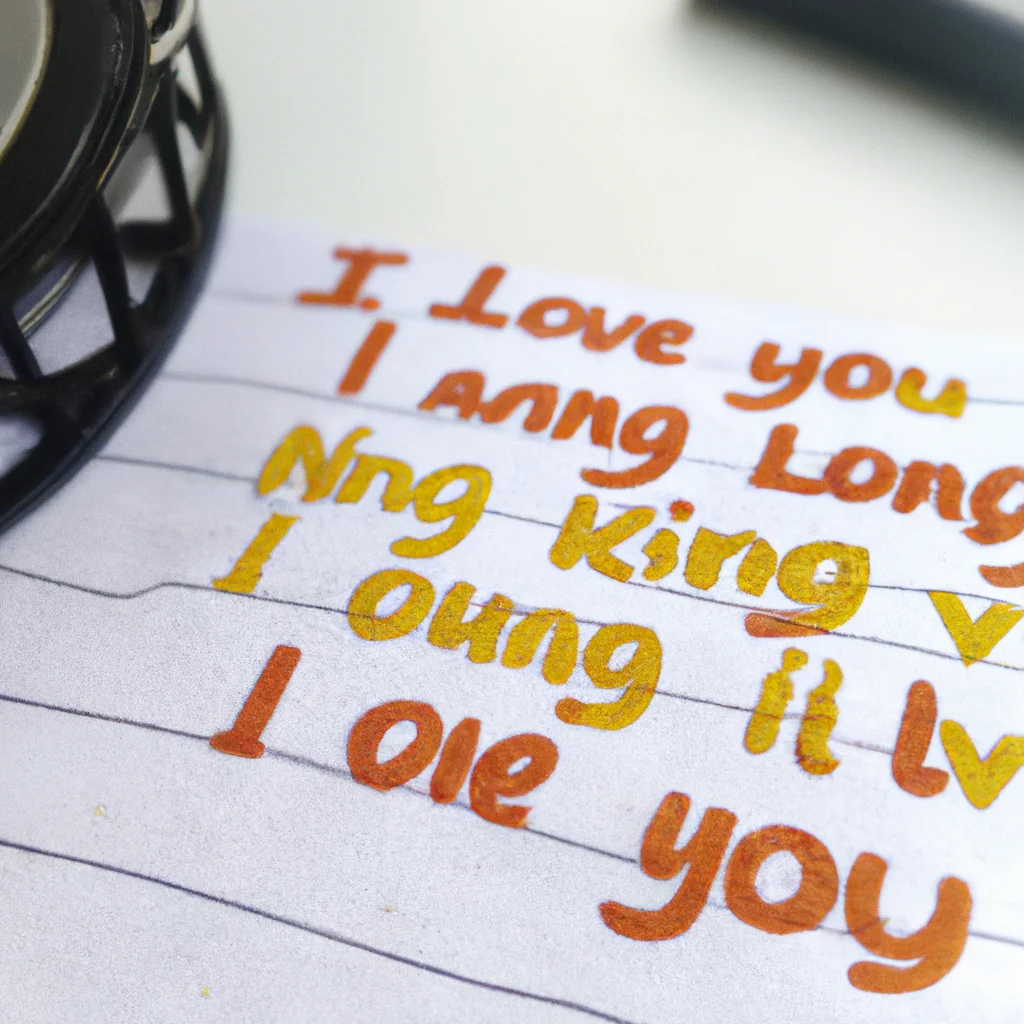 I. Love you
I Anng Long
Nng King v
I oung il lv
I ole you